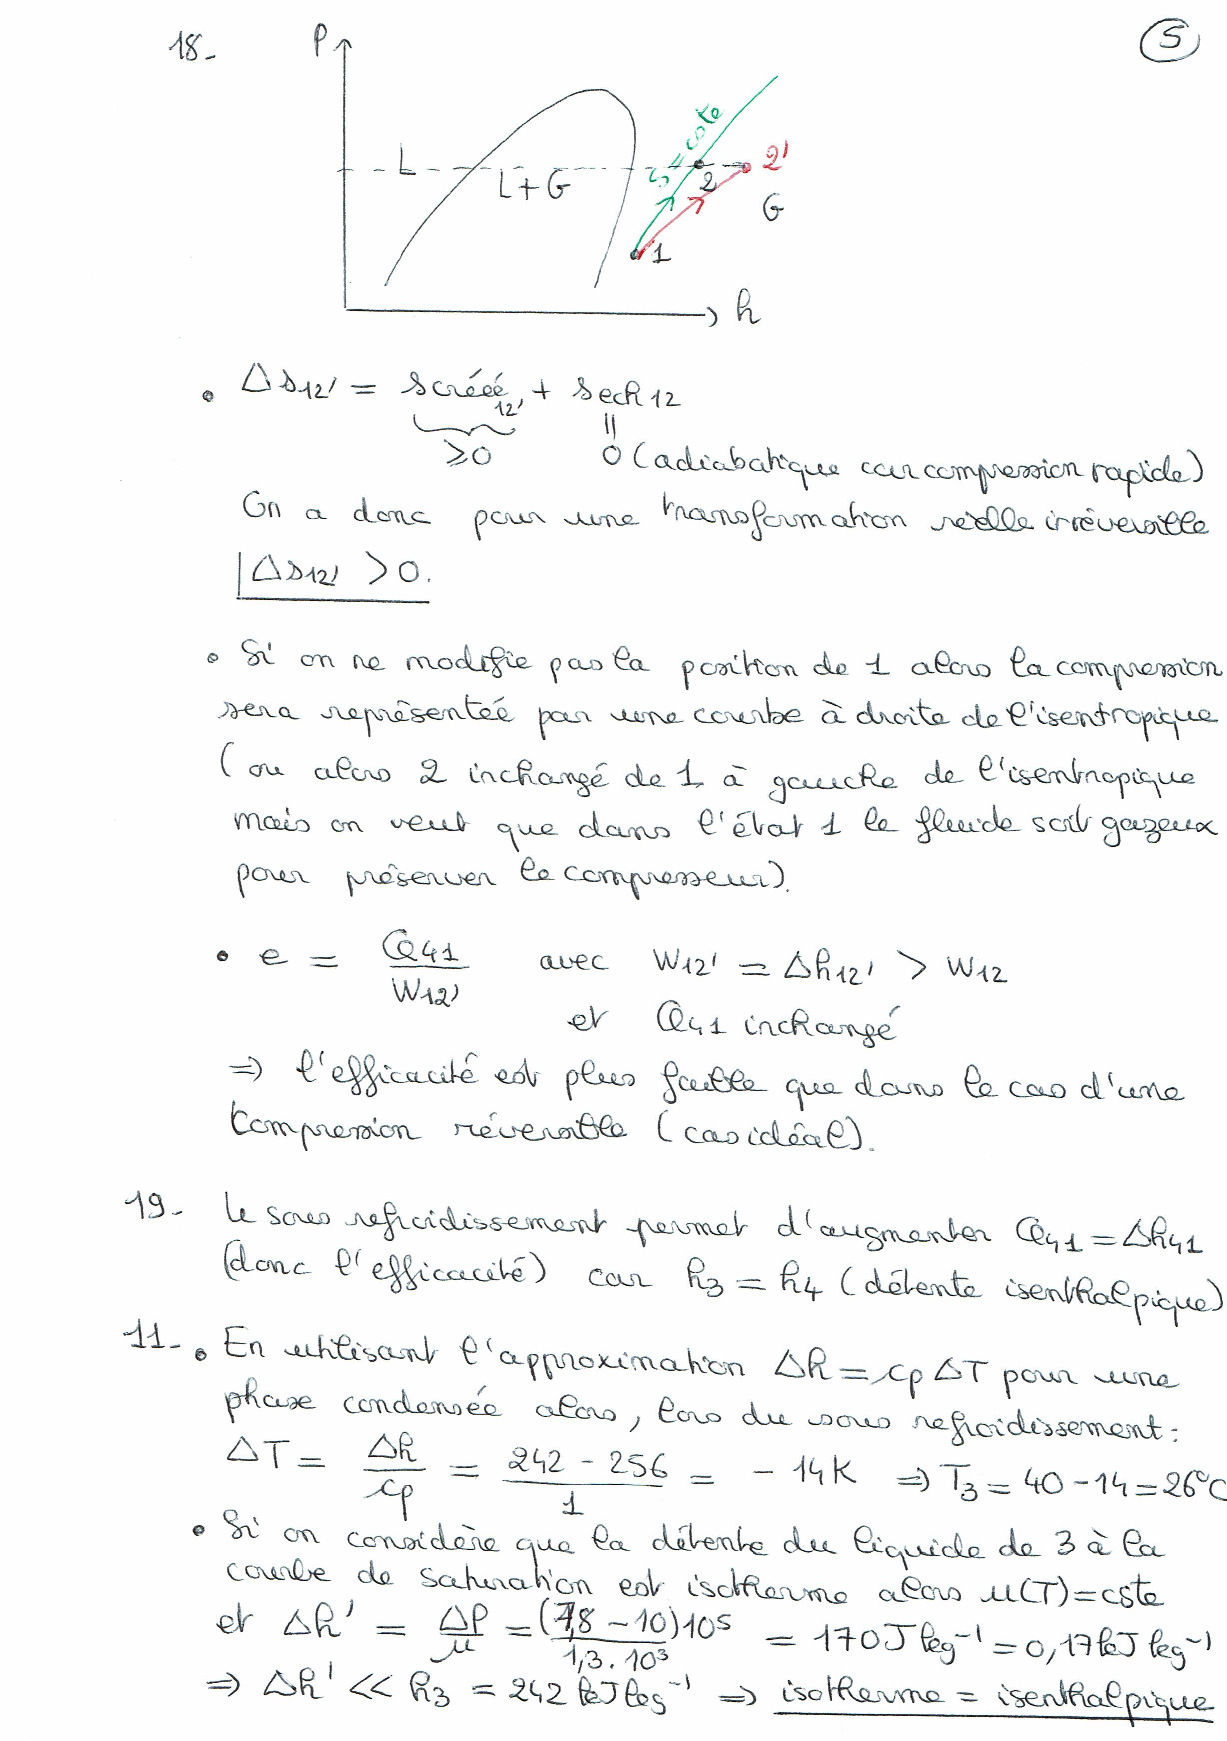 18-
P
5
L
L+G
S = cste
2
2'
G
1
h
• Δs12' = scréée12' + sech12
≥0
=
0 (adiabatique car compression rapide)
On a donc pour une transformation réelle irréversible
Δs12' > 0.
• Si on ne modifie pas la position de 1 alors la compression
sera représentée par une courbe à droite de l'isentropique
(ou alors 2 inchangé de 1 à gauche de l'isentropique
mais on veut que dans l'état 1 le fluide soit gazeux
pour préserver le compresseur).
• e = Q41 / W12' avec W12' = Δh12' > W12
et Q41 inchangé
⇒ l'efficacité est plus faible que dans le cas d'une
compression réversible (cas idéal).
19- Le sous refroidissement permet d'augmenter Q41 = Δh41
(donc l'efficacité) car h3 = h4 (détente isenthalpique)
11- • En utilisant l'approximation Δh = cp ΔT pour une
phase condensée alors, lors du sous refroidissement :
ΔT = Δh / cp = (242 - 256) / 1 = - 14K ⇒ T3 = 40 - 14 = 26°C
• Si on considère que la détente du liquide de 3 à la
courbe de saturation est isotherme alors u(T) = cste
et Δh' = ΔP / μ = (7,8 - 10)10⁵ / 1,3 . 10³ = 170 J kg⁻¹ = 0,17 kJ kg⁻¹
⇒ Δh' << h3 = 242 kJ kg⁻¹ ⇒ isotherme = isenthalpique